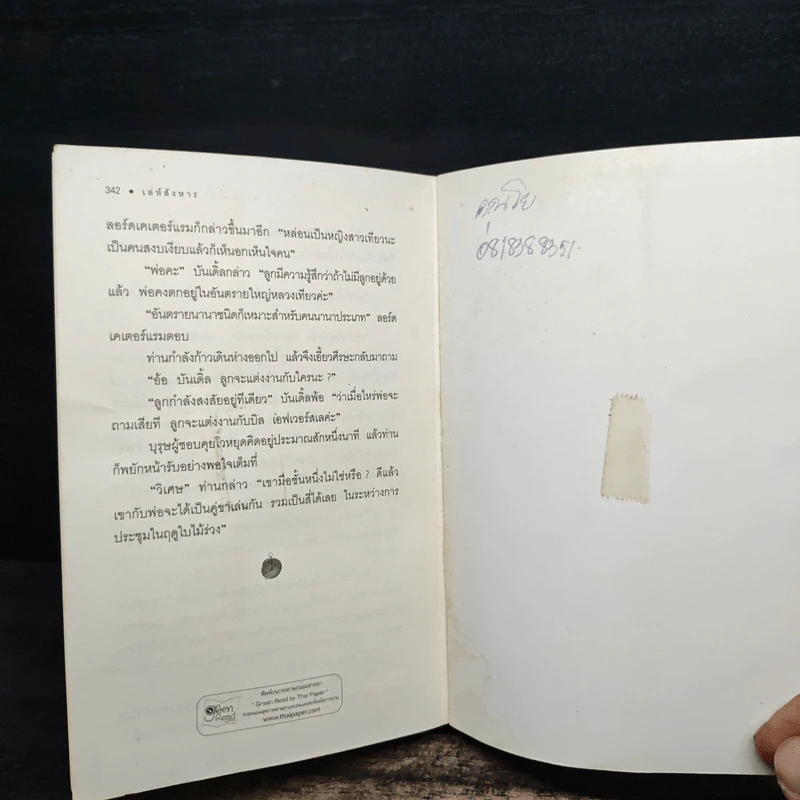 342 • เล่ห์สังหาร
ลอร์ดเคเตอร์แรมก็กล่าวขึ้นมาอีก “หล่อนเป็นหญิงสาวเทียวนะ
เป็นคนสงบเงียบแล้วก็เห็นอกเห็นใจคน”
“พ่อคะ” บันเดิ้ลกล่าว “ลูกมีความรู้สึกว่าถ้าไม่มีลูกอยู่ด้วย
แล้ว พ่อคงตกอยู่ในอันตรายใหญ่หลวงเทียวค่ะ”
“อันตรายนานาชนิดก็เหมาะสำหรับคนนานาประเภท” ลอร์ด
เคเตอร์แรมตอบ
ท่านกำลังก้าวเดินห่างออกไป แล้วจึงเอี้ยวศีรษะกลับมาถาม
“อ้อ บันเดิ้ล ลูกจะแต่งงานกับใครนะ?”
“ลูกกำลังสงสัยอยู่ทีเดียว” บันเดิ้ลพ้อ “ว่าเมื่อไหร่พ่อจะ
ถามเสียที ลูกจะแต่งงานกับบิล เอฟเวอร์สเลค่ะ”
บุรุษผู้ชอบคุยโวหยุดคิดอยู่ประมาณสักหนึ่งนาที แล้วท่าน
ก็พยักหน้ารับอย่างพอใจเต็มที่
“วิเศษ” ท่านกล่าว “เขามือชั้นหนึ่งไม่ใช่หรือ? ดีแล้ว
เขากับพ่อจะได้เป็นคู่ขาเล่นกัน รวมเป็นสี่ได้เลย ในระหว่างการ
ประชุมในฤดูใบไม้ร่วง”
Green
Read
พิมพ์บนกระดาษถนอมสายตา
" Green Read by Thai Paper"
www.thaipaper.com